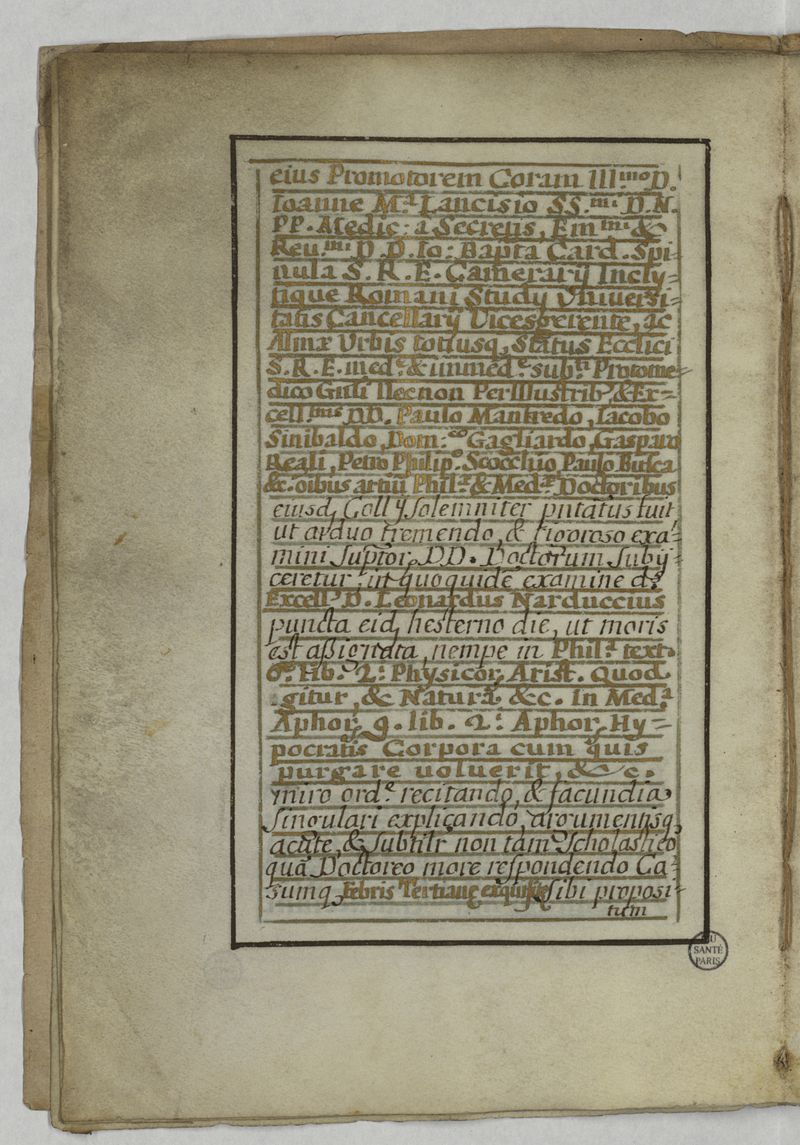 eius Promotorem Coram Ill.mo D.
Ioanne M.a Lancisio SS.mi D.N.
PP. Medic: a Secretis, Em.mi &
Reu.mi D.D. Io: Bapta Card. Spi=
nula S.R.E. Camerarij Incly=
tique Romani Studij Vniuersi=
tatis Cancellarij Vicesgerente, ac
Almæ Vrbis totiusq, Status Ecclici
S.R.E. med.e & immed.e sub.ti Protome=
dico Gnli Necnon PerIllustrib, & Ex=
cell.mis DD. Paulo Manfredo, Iacobo
Sinibaldo, Dom:co Gagliardo, Gaspare
Reali, Petro Philip.o Scocchio, Paulo Busca
&c. oibus artiū Phil.æ & Med.æ Doctoribus
eiusd, Coll ij solemniter pntatus fuit
ut arduo tremendo, & rigoroso exa=
mini suptor, DD. Doctorum subij=
ceretur; in quo quidē examine ds
Excell.s D. Leonardus Narduccius
puncta eid, hesterno die, ut moris
est assignata, nempe in Phil.a text.
6.o lib. 2.i Physicor, Arist. Quod
igitur, & Natura &c. In Med.a
Aphor, 9. lib. 2.i Aphor, Hy=
pocratis Corpora cum quis
purgare uoluerit, & c.
miro ord.e recitando, & facundia
singulari explicando, argumentisq,
acute, & subtilr non tam Scholastico
quā Doctoreo more respondendo Ca=
sumq, Febris Tertianę exquisitę sibi proposi=
tum
BIU
SANTÉ
PARIS